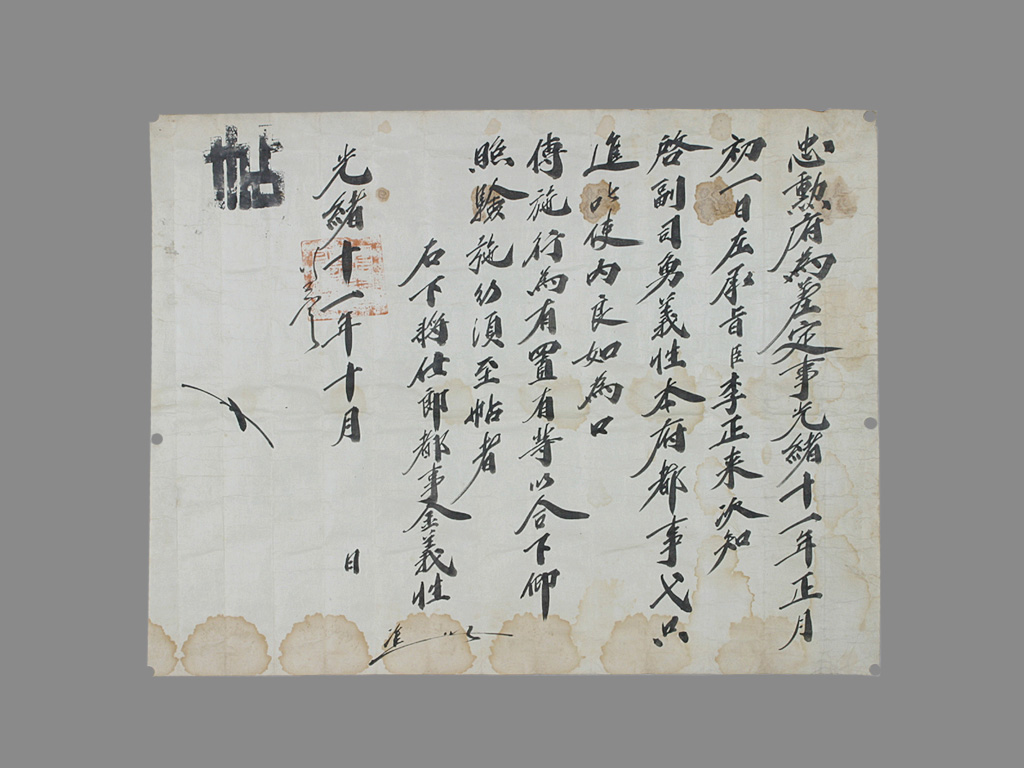 忠勳府為差定事光緒十一年正月
初一日左承旨臣李正来次知
啓副司勇義性本府都事弋只
進叱使內良如為口
傳施行為有置有等以合下仰
照驗施行須至帖者
右下將仕郎都事金義性 準此
光緒十一年十月 日
帖